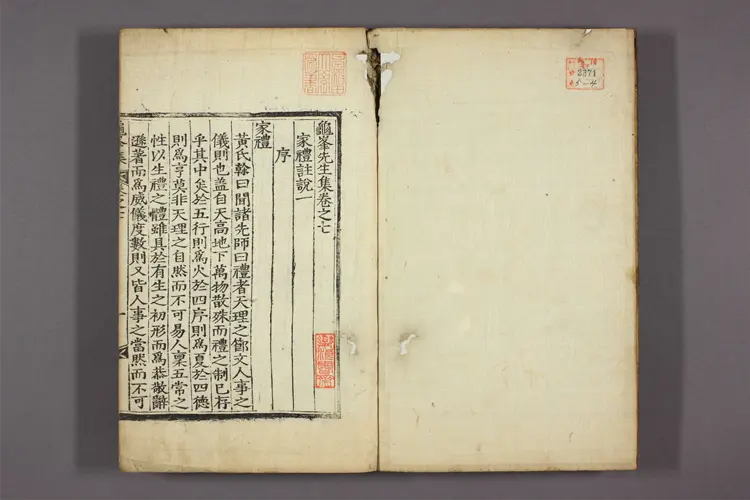 龜峯先生集卷之七
家禮註說一
序
家禮
黃氏榦曰聞諸先師曰禮者天理之節文人事之
儀則也盖自天高地下萬物散殊而禮之制已存
乎其中矣於五行則爲火於四序則爲夏於四德
則爲亨莫非天理之自然而不可易人稟五常之
性以生禮之體雖具於有生之初形而爲恭敬辭
遜著而爲威儀度數則又皆人事之當然而不可
2371
5-4